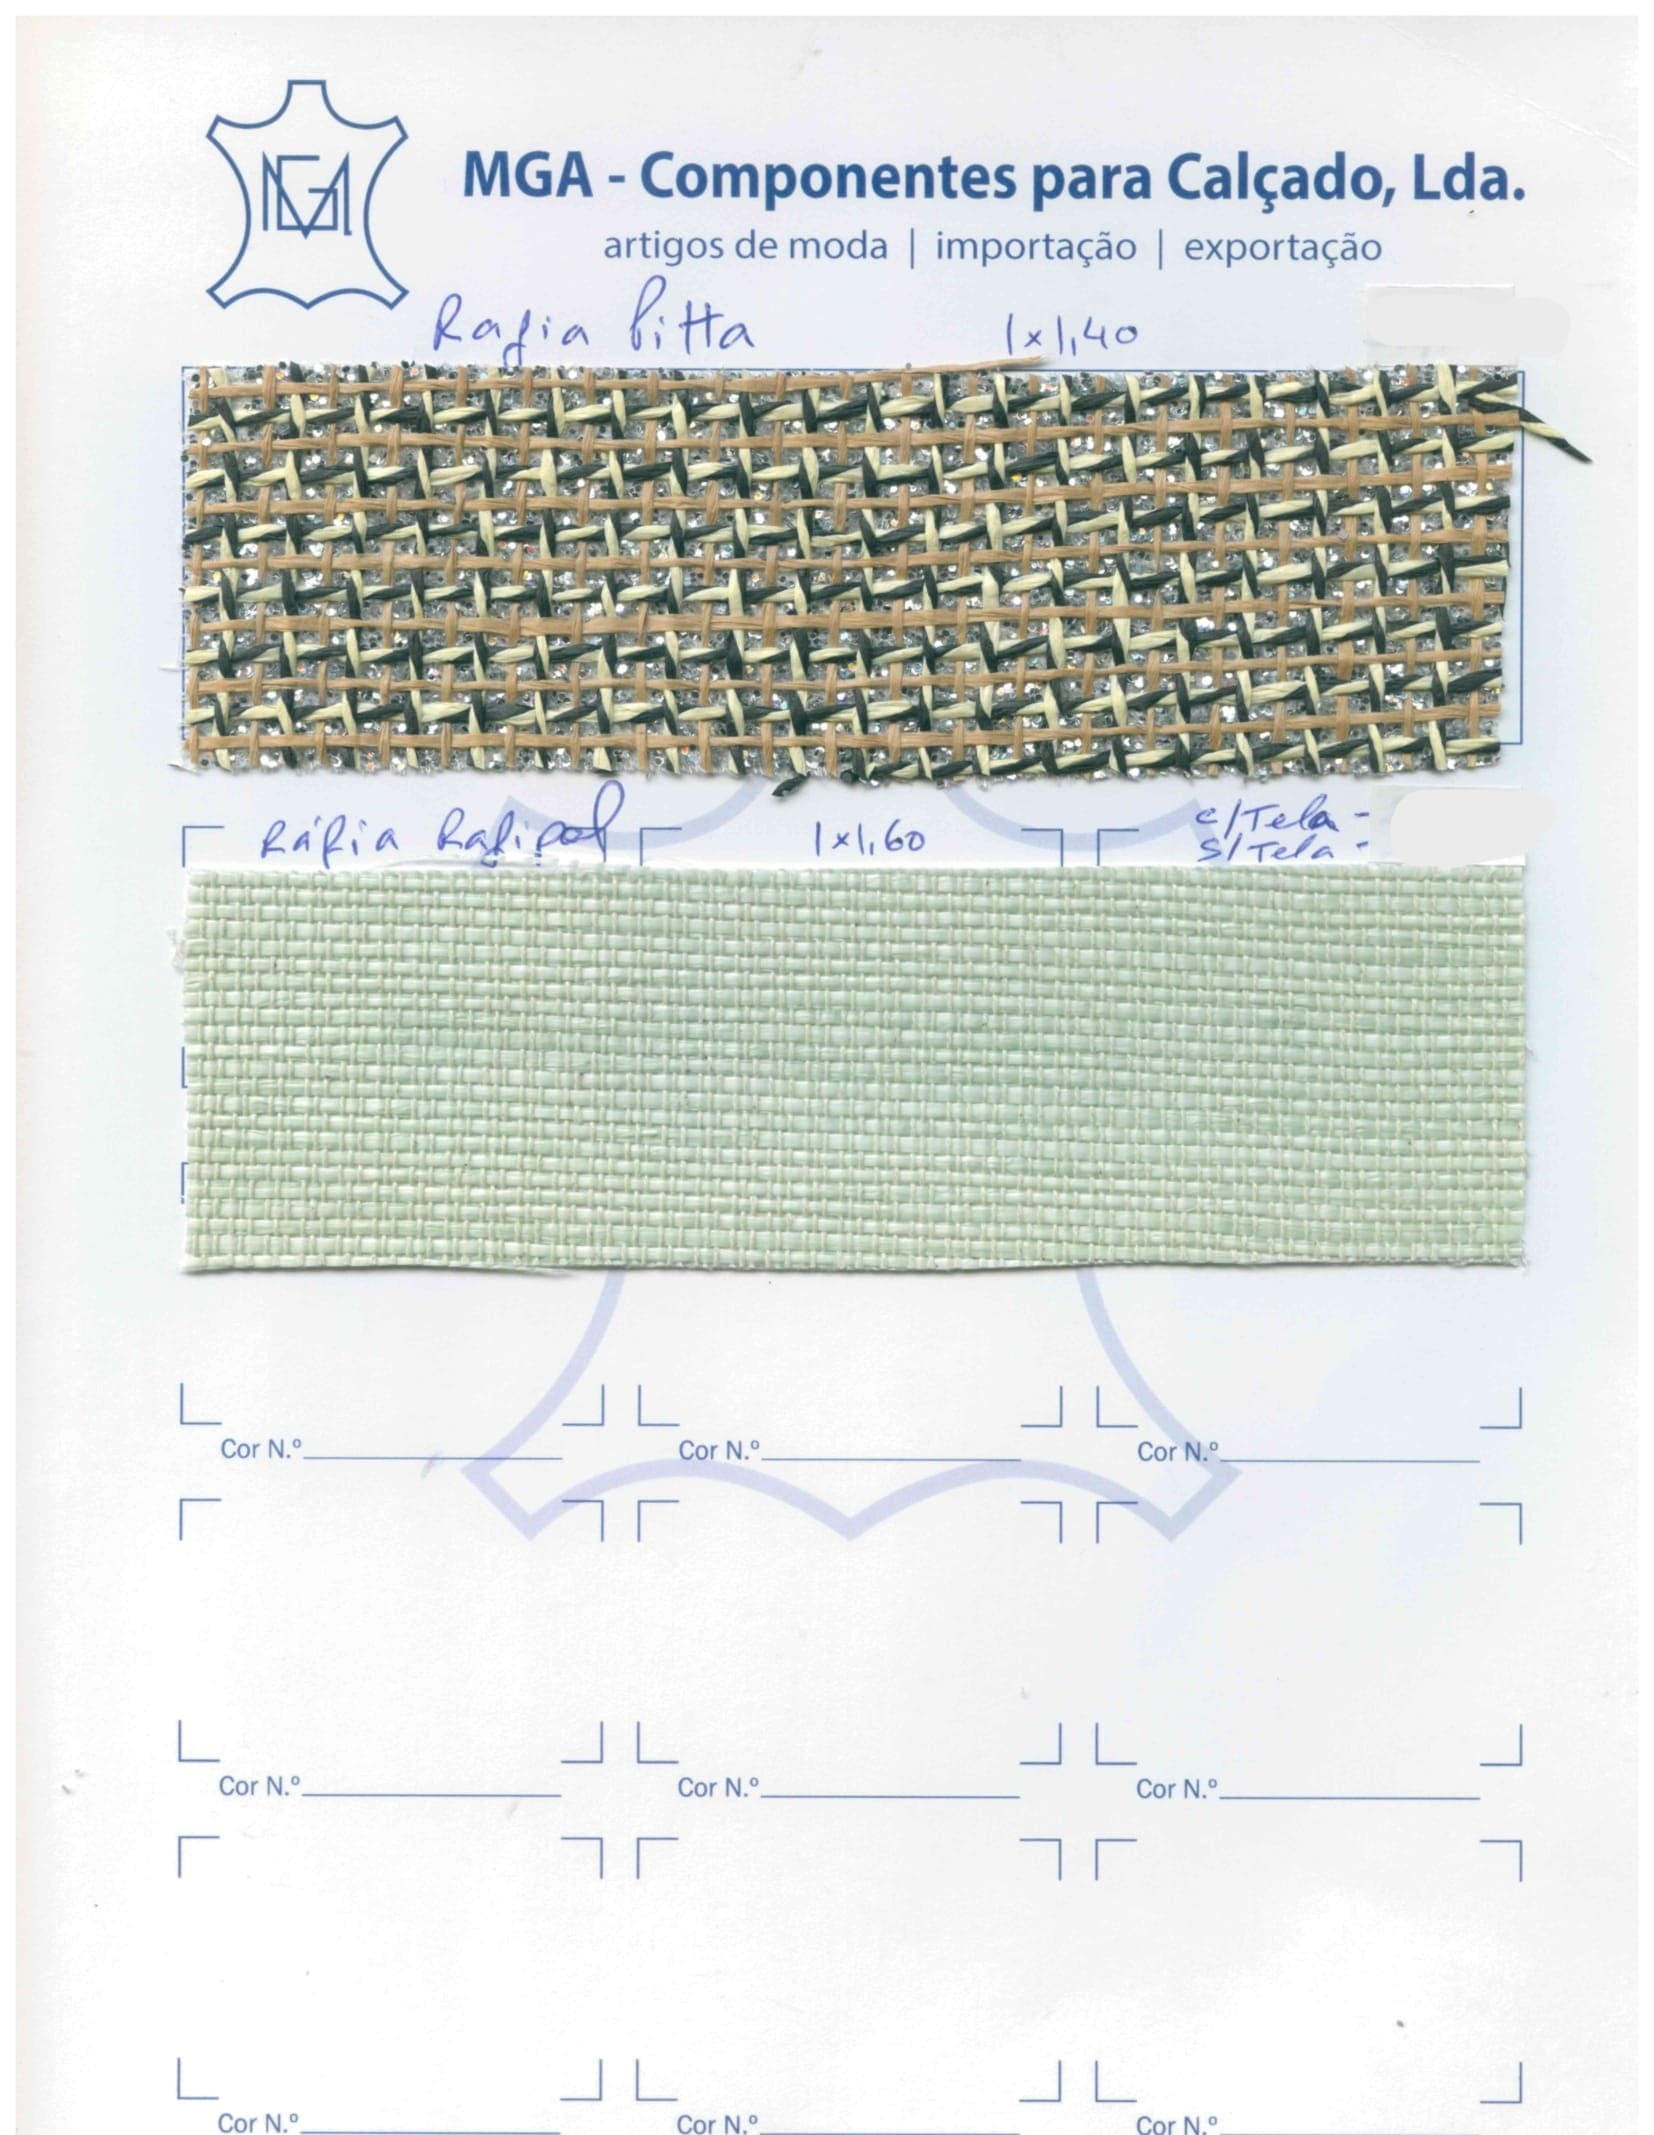 MGA
MGA - Componentes para Calçado, Lda.
artigos de moda | importação | exportação
Rafia Pitta 1x1,40
Ráfia Rafipol 1x1,60 c/Tela -
s/Tela -
Cor N.º Cor N.º Cor N.º
Cor N.º Cor N.º Cor N.º
Cor N.º Cor N.º Cor N.º